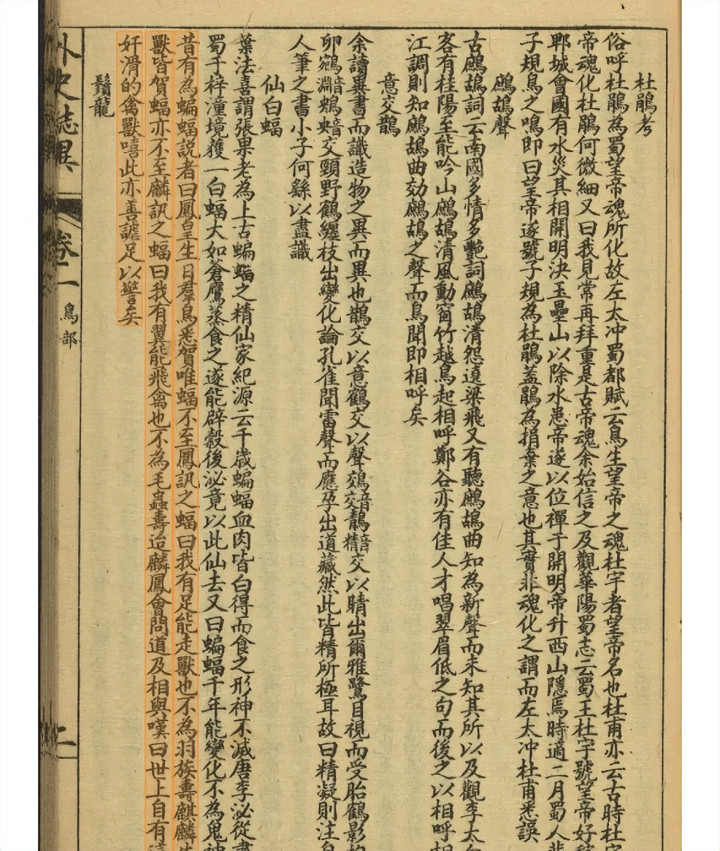 杜鵑考
俗呼杜鵑為蜀望帝魂所化故左太冲蜀都賦云鳥生望帝之魂杜宇者望帝名也杜甫亦云古時杜宇
帝魂化杜鵑何微細又曰我見常再拜重是古帝魂余始信之及觀華陽蜀志云蜀王杜宇號望帝好稼
郫城會國有水災其相開明決玉壘山以除水患帝遂以位禪于開明帝升西山隱焉時適二月蜀人悲
子規鳥之鳴即曰望帝遂號子規為杜鵑蓋鵑為捐棄之意也其實非魂化之謂而左太冲杜甫悉誤
鷓鴣聲
古鷓鴣詞云南國多情多艷詞鷓鴣清怨遶梁飛又有聽鷓鴣曲知為新聲而未知其所以及觀李太白
客有桂陽至能吟山鷓鴣清風動窗竹越鳥起相呼鄭谷亦有佳人才唱翠眉低之句而後之以相呼相
江調則知鷓鴣曲効鷓鴣之聲而鳥聞即相呼矣
意交鵲
余讀異書而識造物之異而異也鵲交以意鶴交以聲鵁鶄交以睛出爾雅鷺目視而受胎鶴影抱
卵鵷鶵交頸野鶴纏枝出變化論孔雀聞雷聲而應孕出道藏然此皆精所極耳故曰精凝則注自
人筆之書小子何繇以盡識
仙白蝠
葉法善謂張果老為上古蝙蝠之精仙家紀源云千歲蝙蝠血肉皆白得而食之形神不滅唐李泌從書
蜀于梓潼境獲一白蝠大如蒼鷹蒸食之遂能辟穀後泌竟以此仙去又曰蝙蝠千年能變化不為鬼神
昔有為蝙蝠說者曰鳳皇生日羣鳥悉賀唯蝠不至鳳訊之蝠曰我有足能走獸也不為羽族壽麒麟生
獸皆賀蝠亦不至麟訊之蝠曰我有翼能飛禽也不為毛蟲壽迨麟鳳會問道及相與嘆曰世上自有這
奸滑的禽獸嘻此亦善謔足以警矣
鬚龍
外史誌異 卷二 鳥部 二